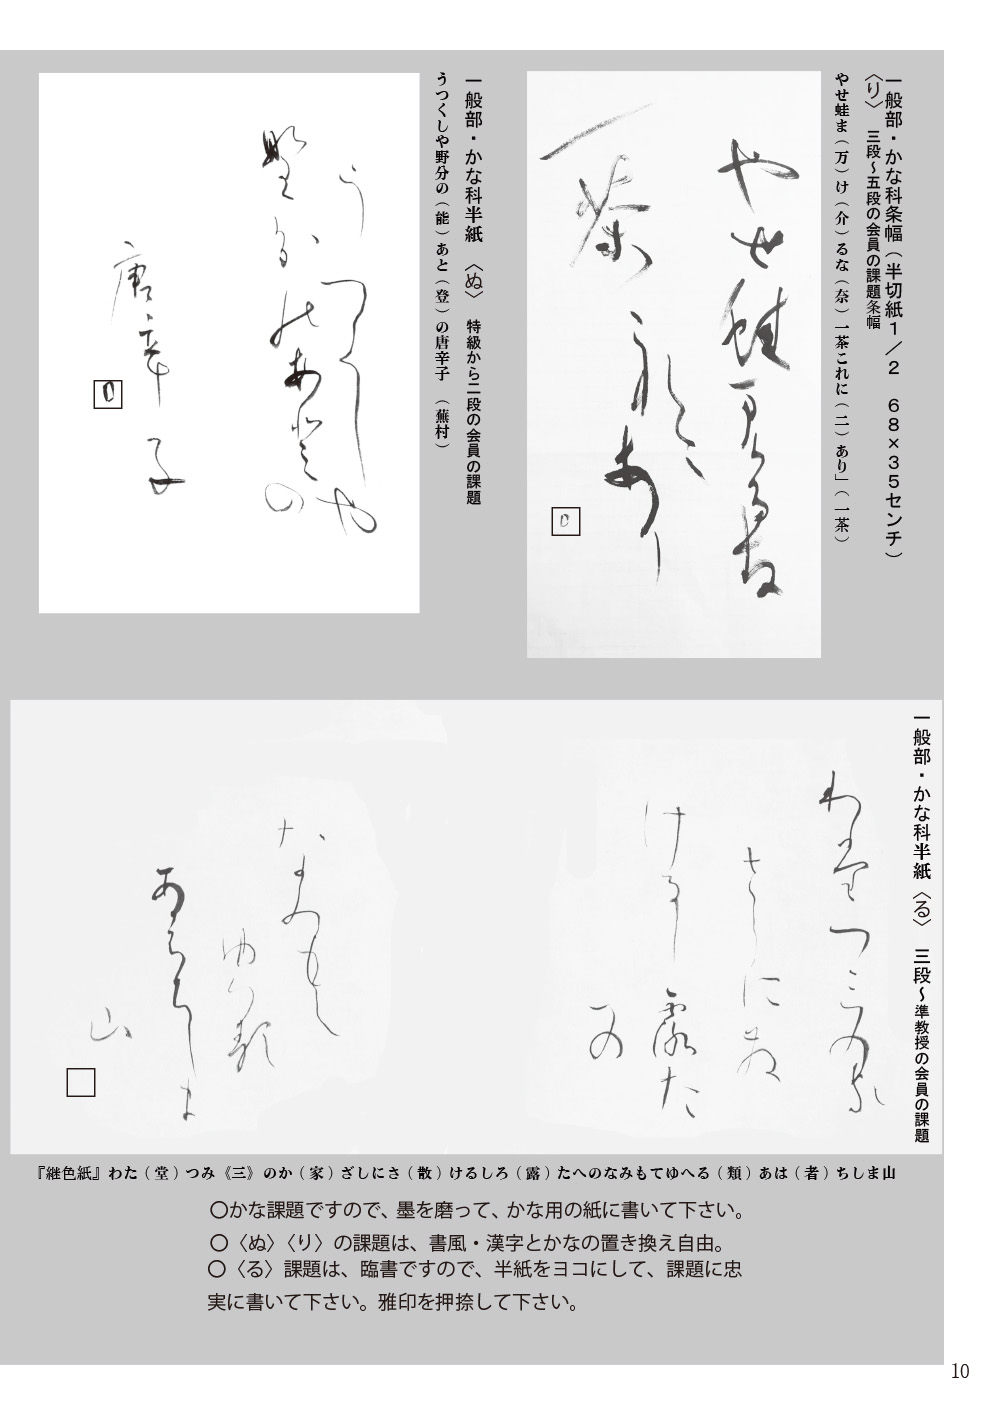 一般部・かな科条幅（半切紙１／２　６８×３５センチ）
〈り〉　三段～五段の会員の課題条幅
やせ蛙ま（万）け（介）るな（奈）一茶これに（二）あり」（一茶）
やせ蛙万介る奈
一茶
これ二
あり
一般部・かな科半紙　〈ぬ〉　特級から二段の会員の課題
うつくしや野分の（能）あと（登）の唐辛子　（蕪村）
うつくしや
野分能あ登の
唐辛子
一般部・かな科半紙〈る〉　三段～準教授の会員の課題
わ堂つ三の家
さしに散
けるし露た
への
なみもて
ゆへ類
あ者ちしま
山
『継色紙』わた（堂）つみ《三》のか（家）ざしにさ（散）けるしろ（露）たへのなみもてゆへる（類）あは（者）ちしま山
〇かな課題ですので、墨を磨って、かな用の紙に書いて下さい。
〇〈ぬ〉〈り〉の課題は、書風・漢字とかなの置き換え自由。
〇〈る〉課題は、臨書ですので、半紙をヨコにして、課題に忠
実に書いて下さい。雅印を押捺して下さい。
10